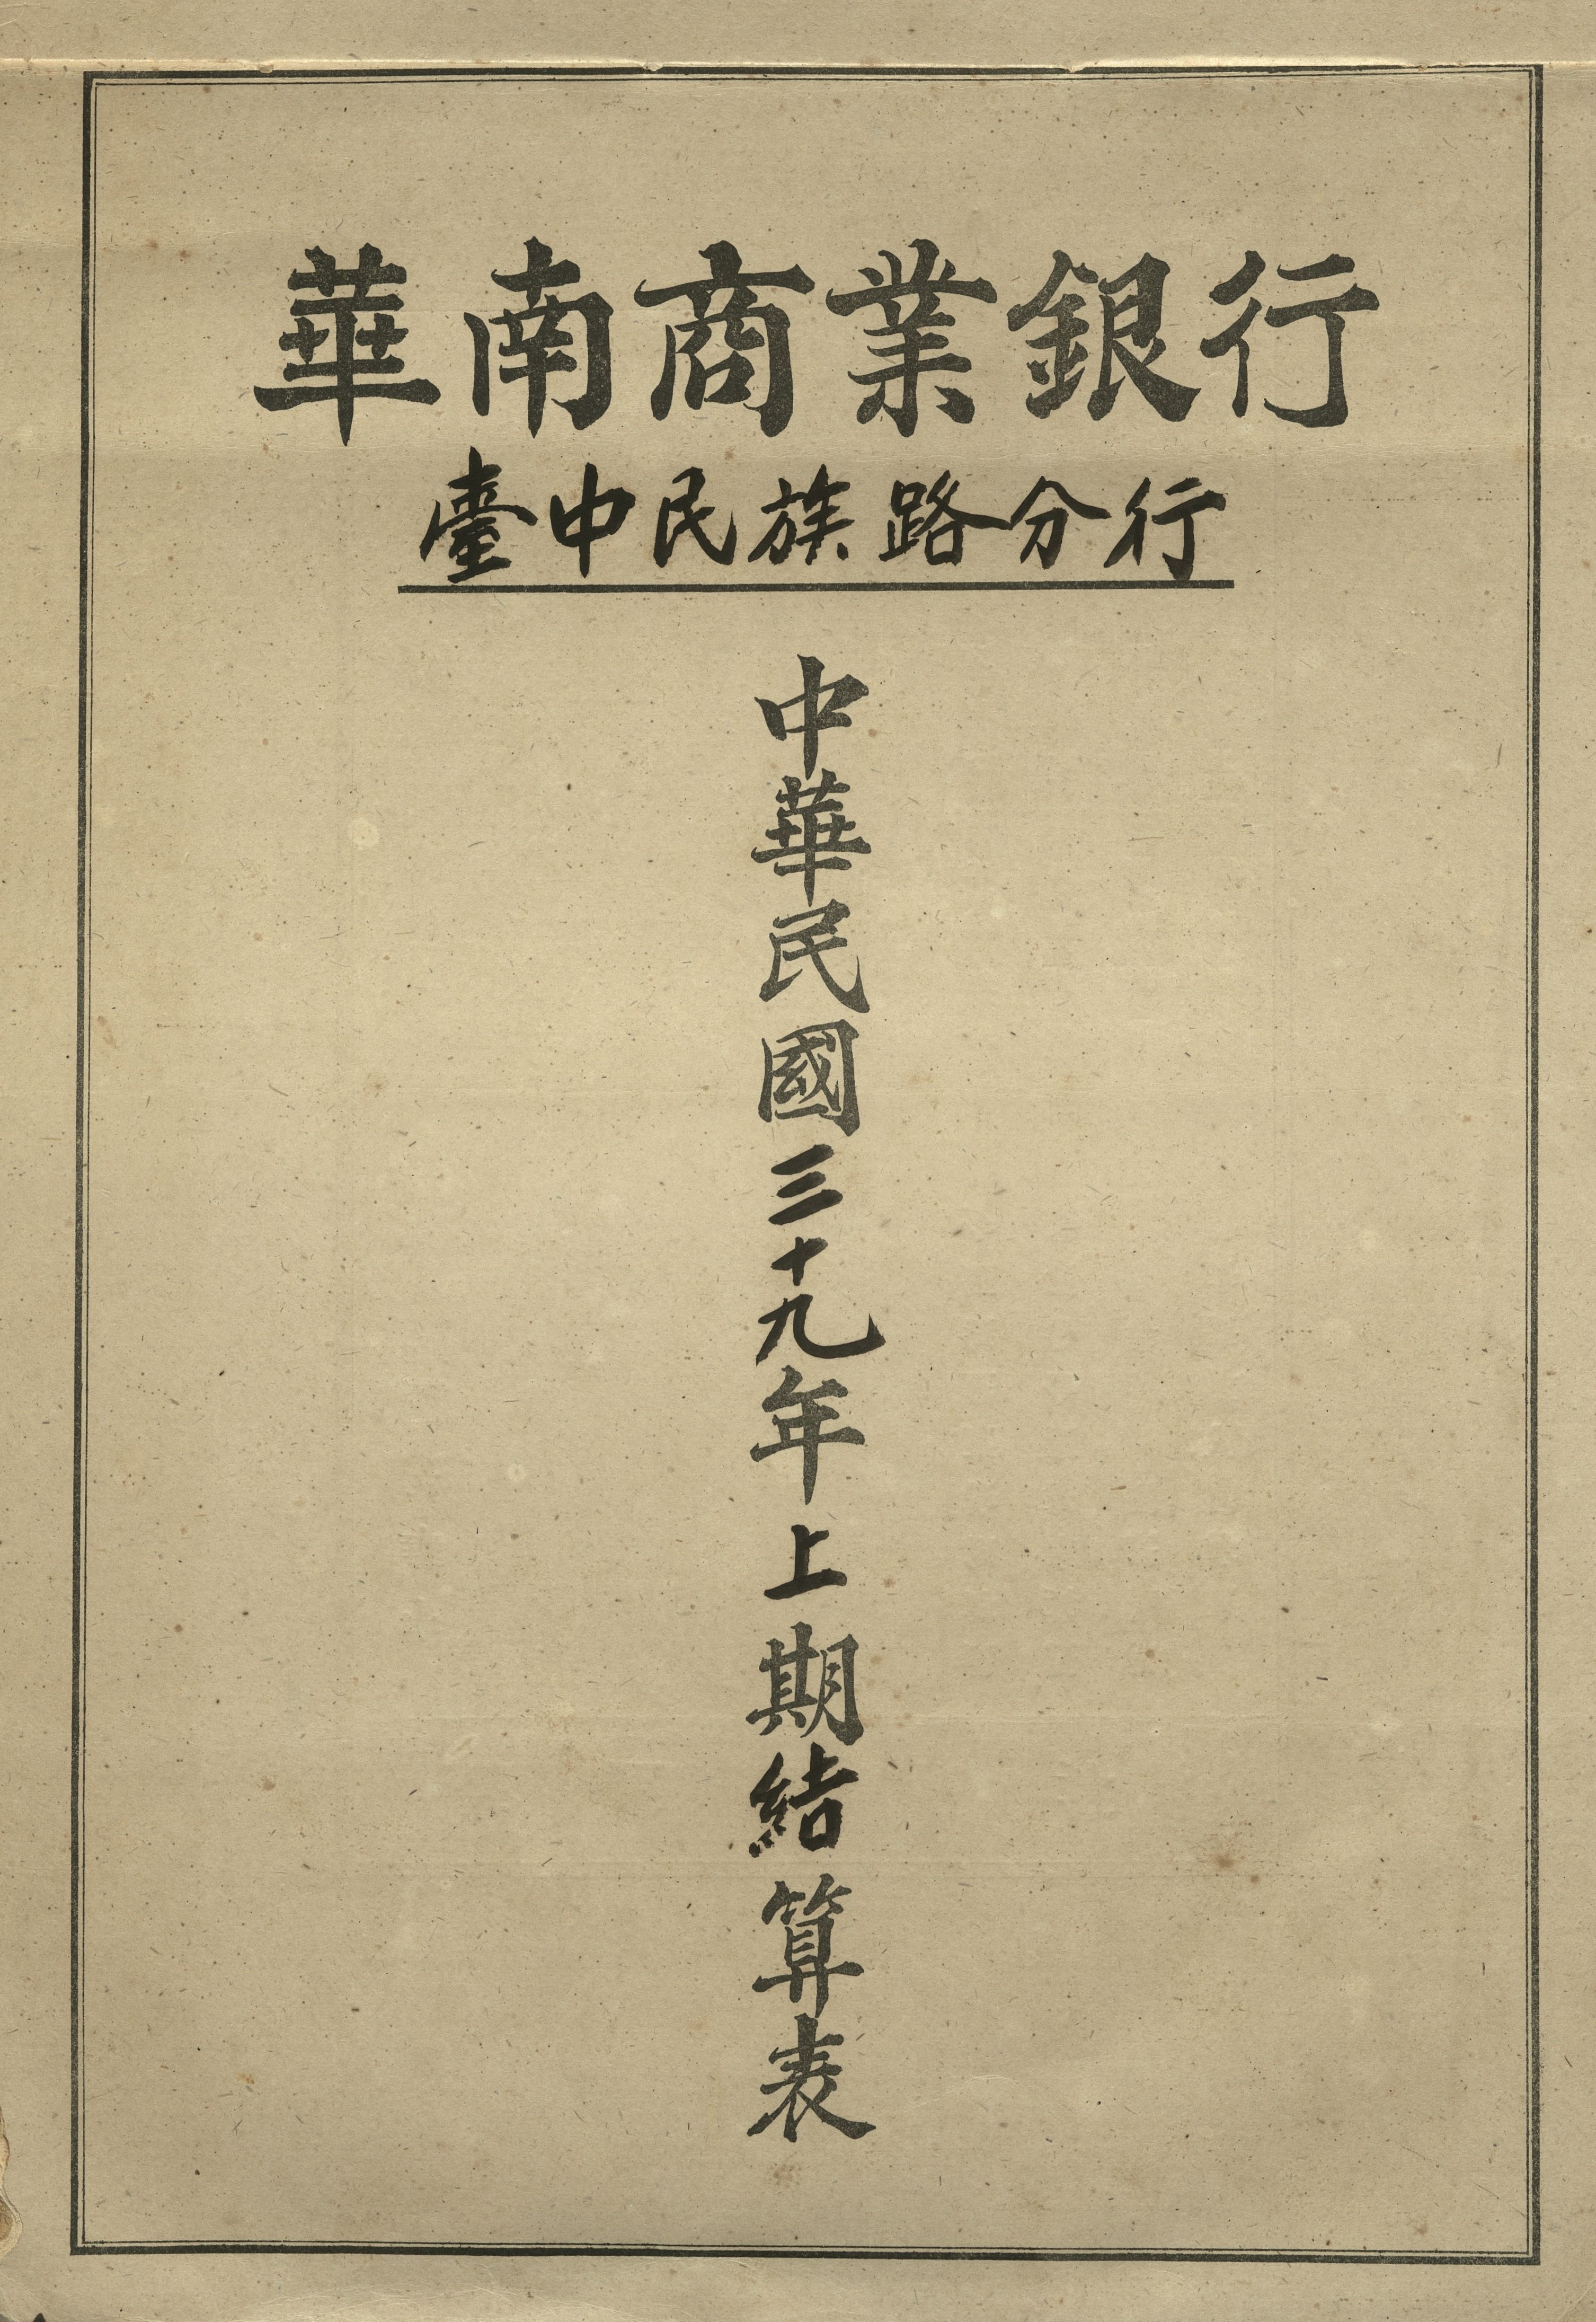 華南商業銀行
臺中民族路分行
中華民國三十九年上期結算表